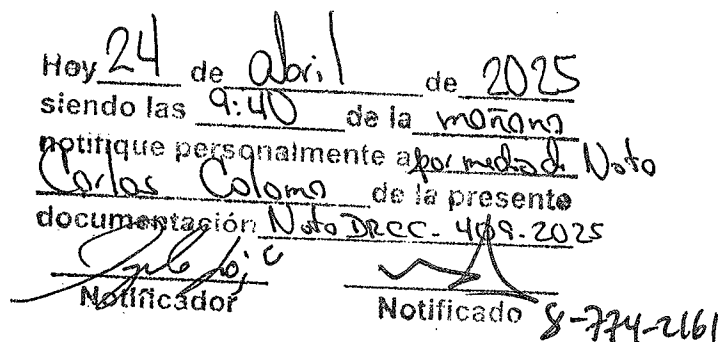 Hoy 24 de abril de 2025
siendo las 9:40 de la mañana
notifique personalmente a por medio de Nota
Carlos Coloma de la presente
documentación Nota DRCC-409-2025
Notificador Notificado
8-774-2161